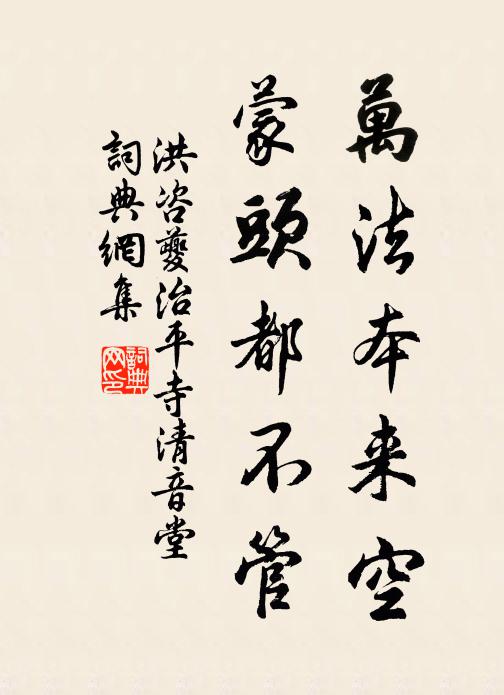 萬法本来空
蒙頭都不管
洪咨夔治平寺清音堂
詞典網集
詞典网印